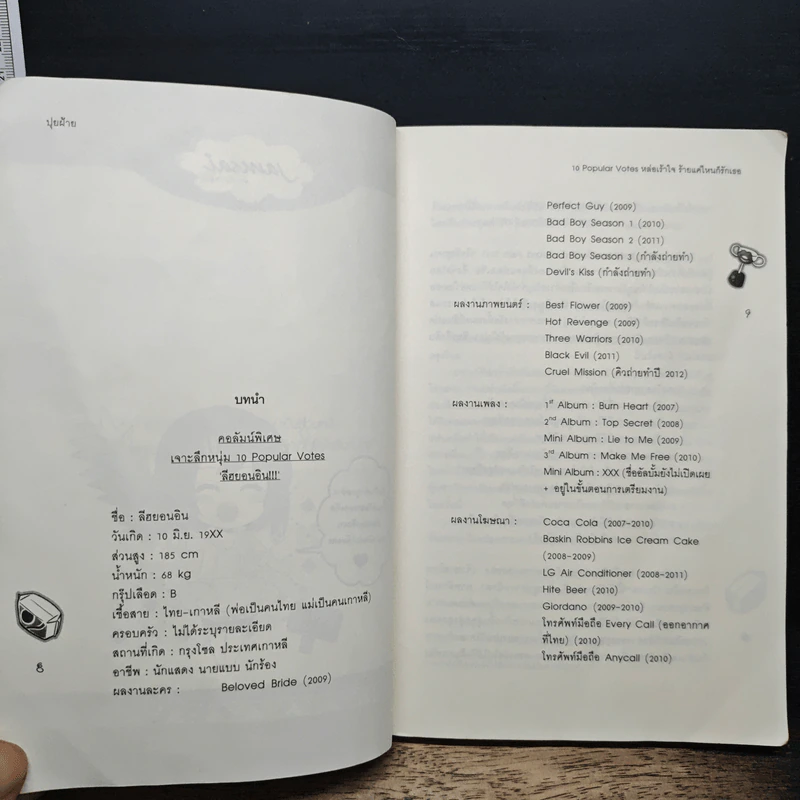 ปุยฝ้าย
บทนำ
คอลัมน์พิเศษ
เจาะลึกหนุ่ม 10 Popular Votes
'ลีฮยอนอิน!!!'
ชื่อ : ลีฮยอนอิน
วันเกิด : 10 มิ.ย. 19XX
ส่วนสูง : 185 cm
น้ำหนัก : 68 kg
กรุ๊ปเลือด : B
เชื้อสาย : ไทย-เกาหลี (พ่อเป็นคนไทย แม่เป็นคนเกาหลี)
ครอบครัว : ไม่ได้ระบุรายละเอียด
สถานที่เกิด : กรุงโซล ประเทศเกาหลี
อาชีพ : นักแสดง นายแบบ นักร้อง
ผลงานละคร : Beloved Bride (2009)
8
10 Popular Votes หล่อเร้าใจ ร้ายแค่ไหนก็รักเธอ
Perfect Guy (2009)
Bad Boy Season 1 (2010)
Bad Boy Season 2 (2011)
Bad Boy Season 3 (กำลังถ่ายทำ)
Devil's Kiss (กำลังถ่ายทำ)
ผลงานภาพยนตร์ : Best Flower (2009)
Hot Revenge (2009)
Three Warriors (2010)
Black Evil (2011)
Cruel Mission (คิวถ่ายทำปี 2012)
ผลงานเพลง : 1st Album : Burn Heart (2007)
2nd Album : Top Secret (2008)
Mini Album : Lie to Me (2009)
3rd Album : Make Me Free (2010)
Mini Album : XXX (ชื่ออัลบั้มยังไม่เปิดเผย
+ อยู่ในขั้นตอนการเตรียมงาน)
ผลงานโฆษณา : Coca Cola (2007-2010)
Baskin Robbins Ice Cream Cake
(2008-2009)
LG Air Conditioner (2008-2011)
Hite Beer (2010)
Giordano (2009-2010)
โทรศัพท์มือถือ Every Call (ออกอากาศ
ที่ไทย) (2010)
โทรศัพท์มือถือ Anycall (2010)
9